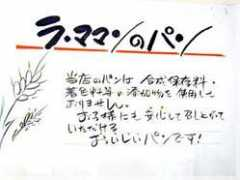 ラ・ママンのパン
当店のパンは合成保存料・
着色料等の添加物を使用して
おりません。
お子様にも安心して召し上がって
いただける
おいしいパンです!